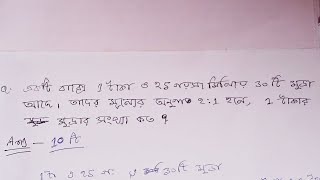 Q. একটি বাক্সে 1 টাকা ও 25 পয়সা মিলিয়ে 30 টি মুদ্রা
আছে। তাদের মূল্যের অনুপাত 2:1 হলে, 1 টাকার
মুদ্রার সংখ্যা কত ?
Ans - 10 টি
ও 25 30 টি মুদ্রা